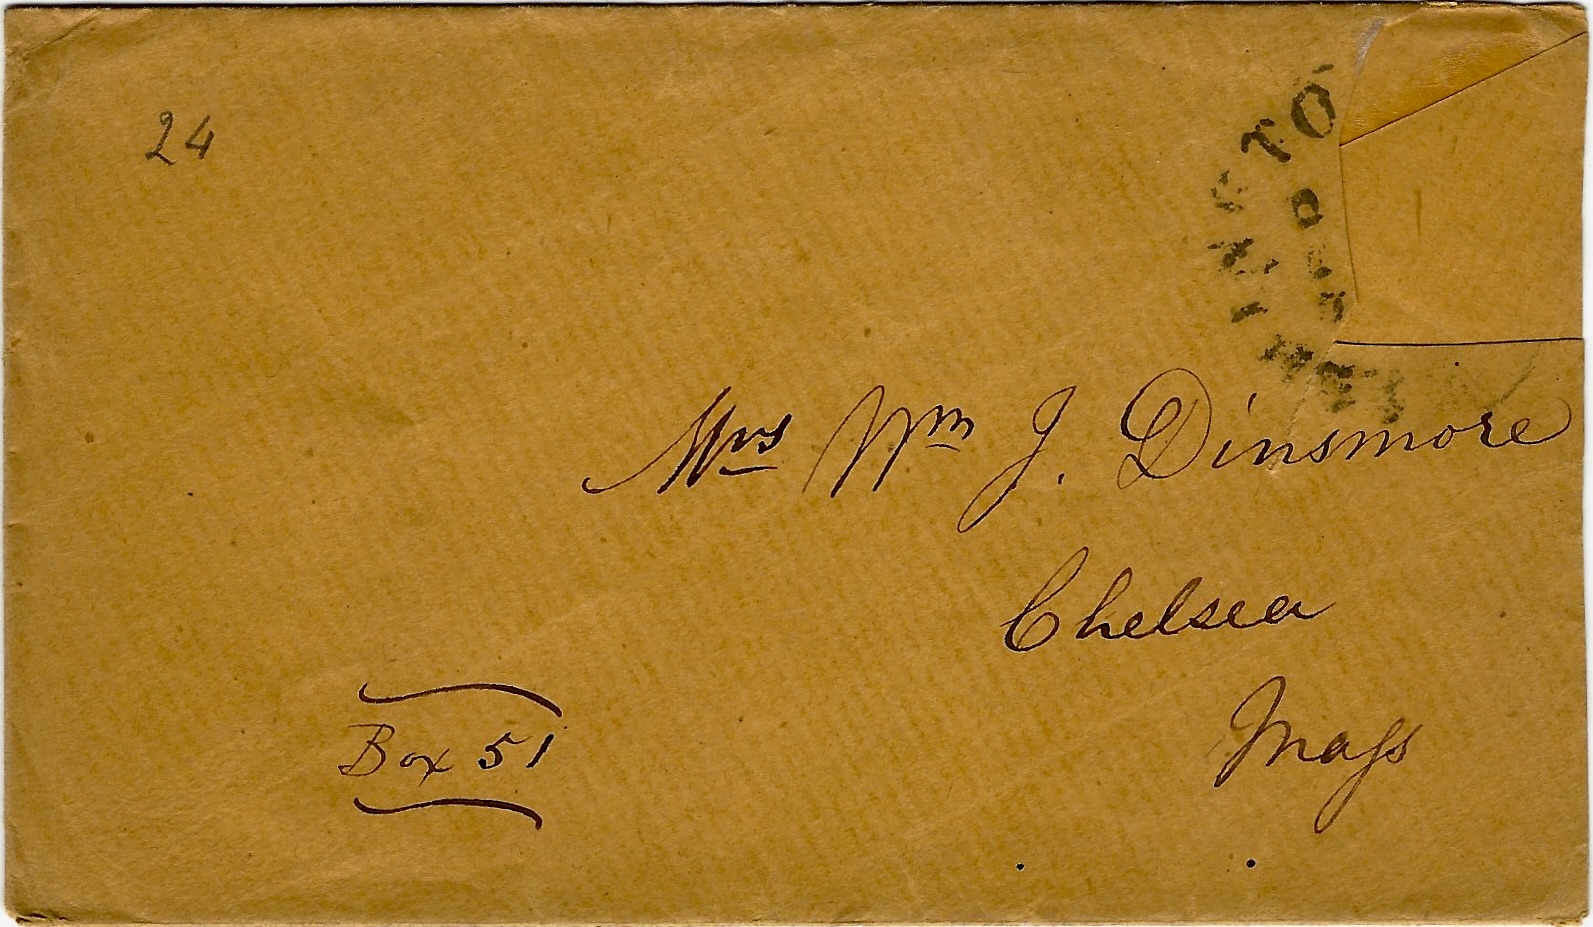 24
Mrs Wm J. Dinsmore
Chelsea
Mass
Box 51